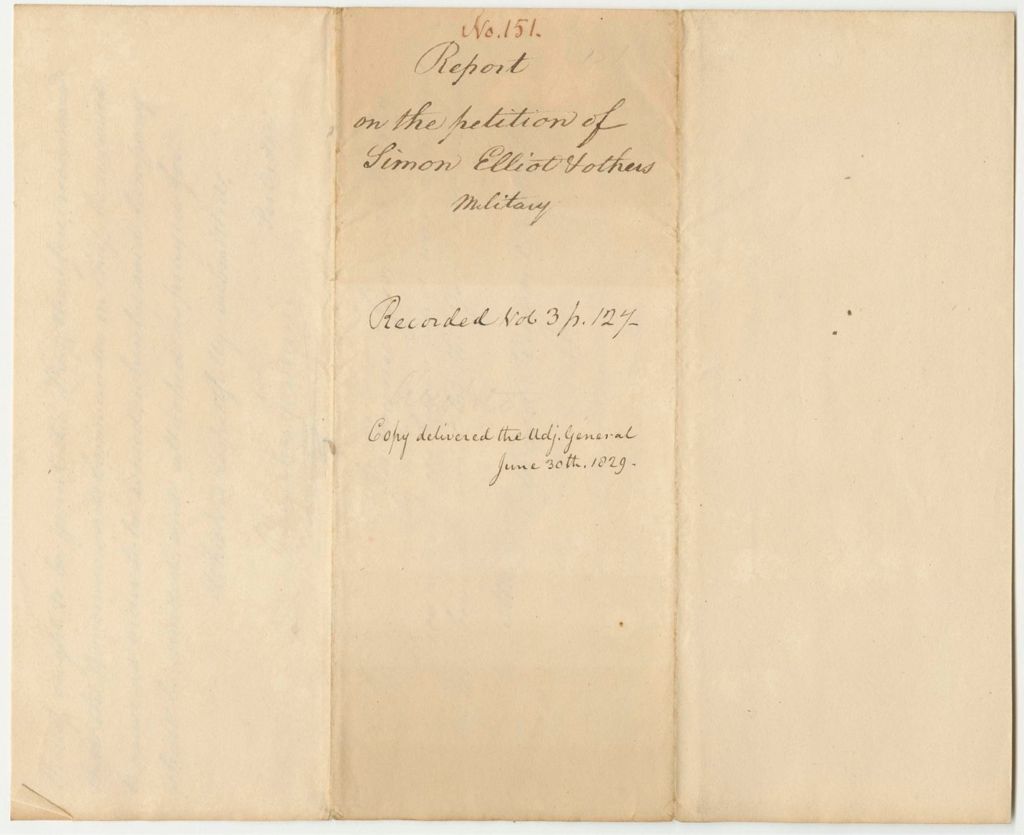 No. 151.
Report
on the petition of
Simon Elliot & others
Military
Recorded Vol 3 p. 127
Copy delivered the Adj. General
June 30th. 1829.